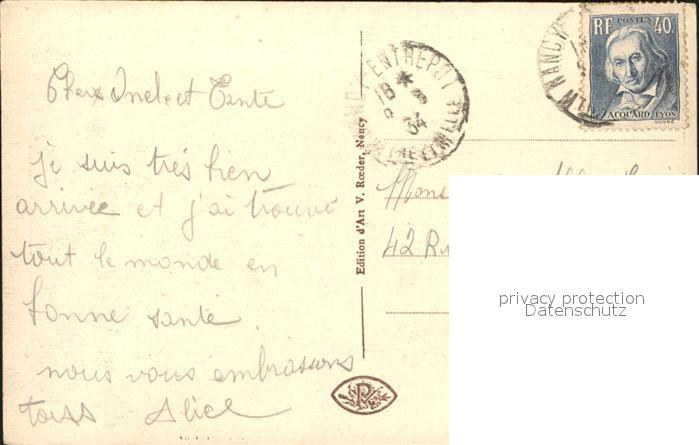 Chers Oncle et Tante
je suis très bien
arrivée et j'ai trouvé
tout le monde en
bonne santé
nous vous embrassons
tous Alice
Edition d'Art V. Rœder, Nancy
NANCY-ENTREPOT
18 *
34
MEURTHE-ET-MLLE
NANCY
RF POSTES 40c
JACQUARD LYON
OUVRÉ
Mons
42 Ru
privacy protection
Datenschutz